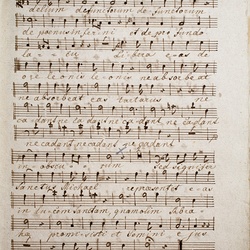 delium defunctorum de functorum
de poenis inferni et de pro fundo
la - cu libera e as de
ore le onis le onis ne absorbe at
ne absorbeat eas tartarus ne
cadant ne cadant ne cadant ne cadant
ne cadant ne cadant ne cadant
in obscu - rum Sed signifer
Sanctus Michael repraesentet e - as
in lucem sanctam, quam olim Abra -
hae promi - sisti et semini e jus